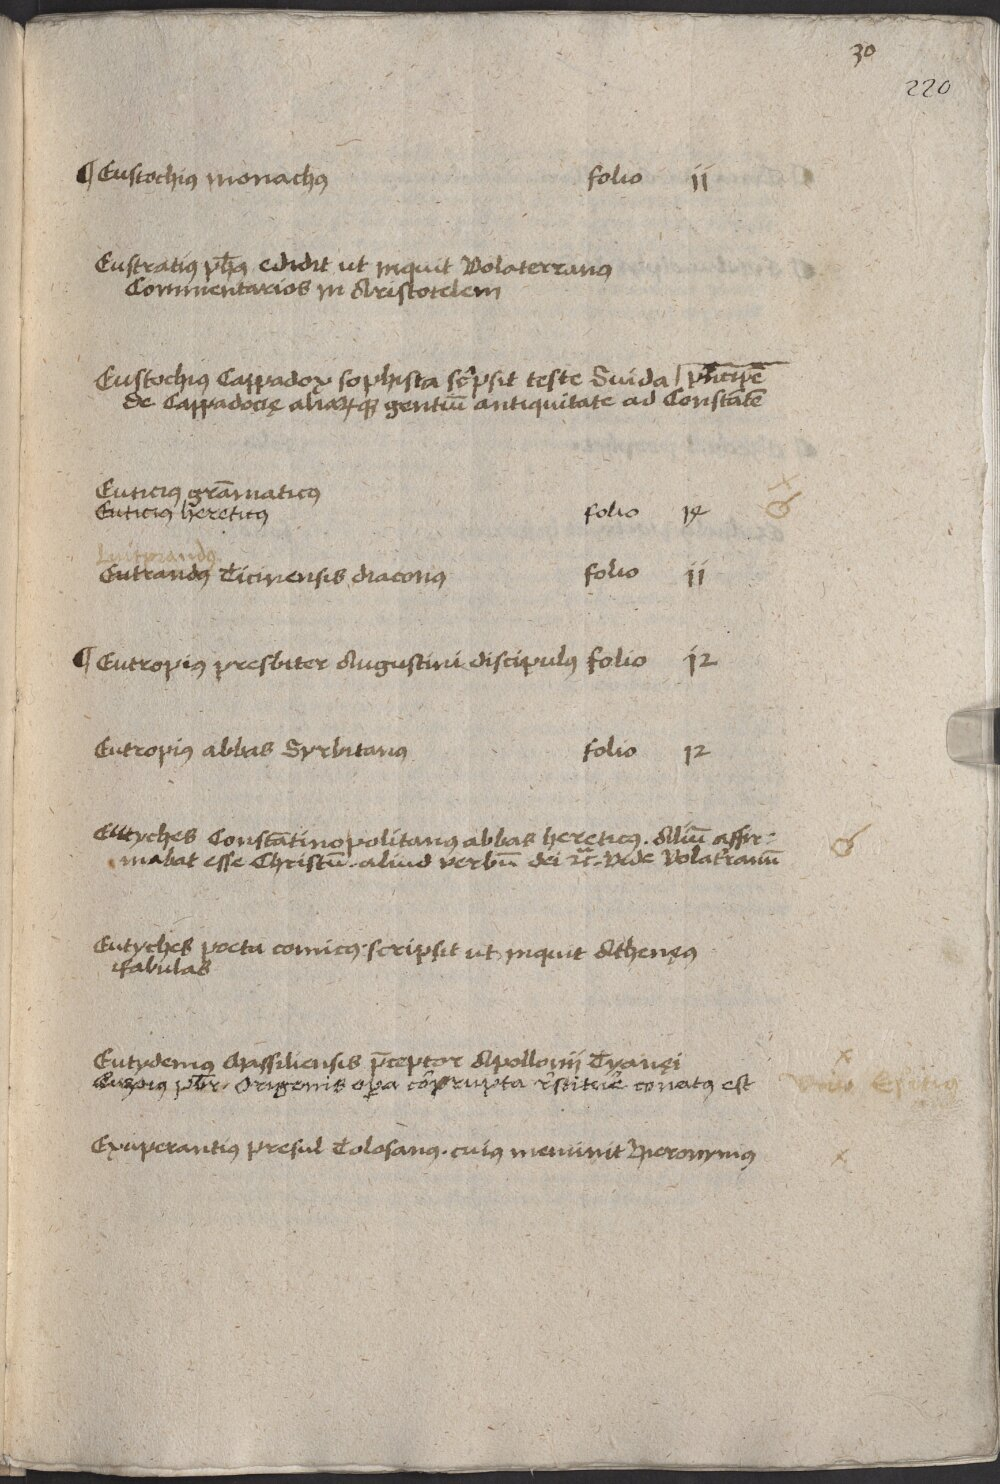 30
220
¶ Eustochiꝰ monachꝰ folio ij
Eustratiꝰ ph̄s edidit ut inquit Volaterranꝰ
Commentarios in Aristotelem
Eustochiꝰ Cappadox sophista sc̄psit teste Suida | pͥncipē
de Cappadocię aliaꝝqꝫ gentiū antiquitate ad Constātē
Euticiꝰ grāmaticꝰ
Euticiꝰ hereticꝰ folio 14
Luitprandꝰ
Eutrandꝰ Ticinensis diaconꝰ folio ij
¶ Eutropiꝰ presbiter Augustini discipulꝰ folio 12
Eutropiꝰ abbas Syrbitanꝰ folio 12
Eutyches Constātinopolitanꝰ abbas hereticꝰ. Aliū affir-
mabat esse Christū. aliud verbū dei ⁊c̄. Vide Volat̄ranū
Eutyches poeta comicꝰ. scripsit ut inquit Athenęꝰ
fabulas
Eutydemꝰ Massiliensis p̄ceptor Apollonij Tyanęi x
Euzoiꝰ pb̄r. Origenis oꝑa cōrrupta r̄stituē conatꝰ est
Exuperantiꝰ presul Tolosanꝰ. cuiꝰ meminit Hieronymꝰ x